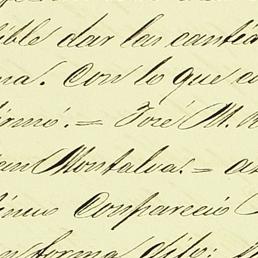 ible dar las cantid
na. Con lo que c
firmó. = José M. R
em Montalva. = a
tinuo Compareció
n forma dijo: